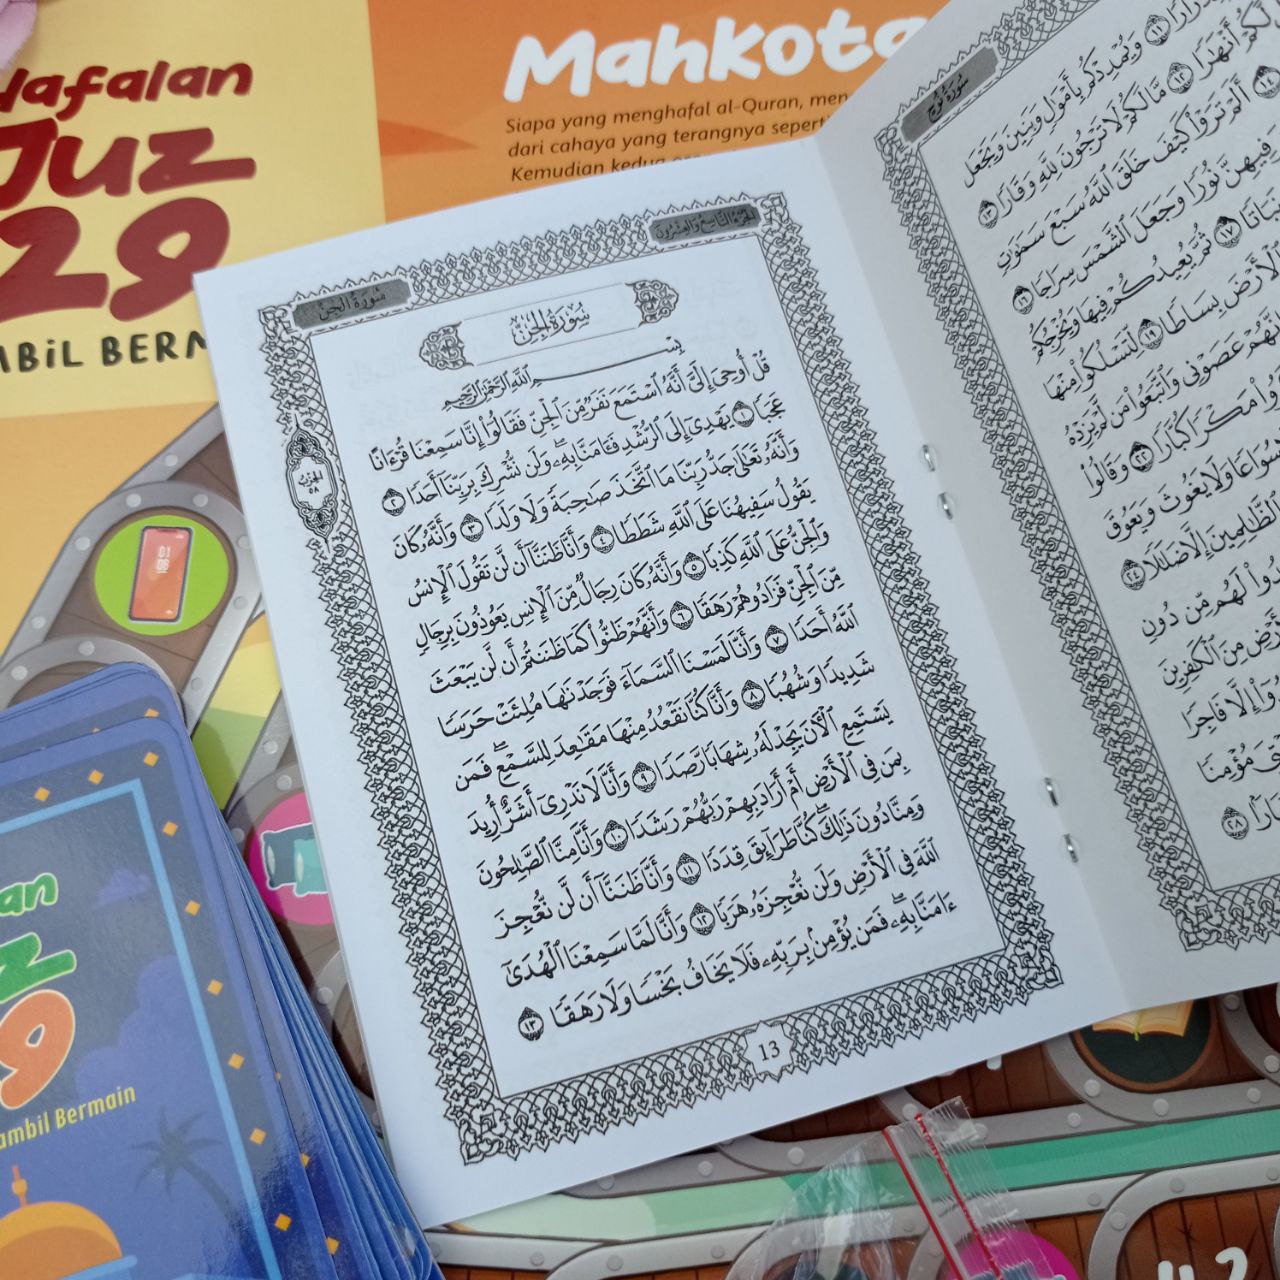 Hafalan
Juz
29
Mahkota
Siapa yang menghafal al-Quran, men
dari cahaya yang terangnya seperti
Kemudian kedua
MBIL BERM
سُورَةُ الجِنِّ
الجُزْءُ التَّاسِعُ وَالعِشْرُونَ
سُورَةُ الجِنِّ
بِسْمِ ٱللَّهِ ٱلرَّحْمَٰنِ ٱلرَّحِيمِ
قُلْ أُوحِىَ إِلَىَّ أَنَّهُ ٱسْتَمَعَ نَفَرٌ مِّنَ ٱلْجِنِّ فَقَالُوٓا۟ إِنَّا سَمِعْنَا قُرْءَانًا
عَجَبًا ١ يَهْدِىٓ إِلَى ٱلرُّشْدِ فَـَٔامَنَّا بِهِۦ ۖ وَلَن نُّشْرِكَ بِرَبِّنَآ أَحَدًا ٢
وَأَنَّهُۥ تَعَٰلَىٰ جَدُّ رَبِّنَا مَا ٱتَّخَذَ صَٰحِبَةً وَلَا وَلَدًا ٣ وَأَنَّهُۥ كَانَ
يَقُولُ سَفِيهُنَا عَلَى ٱللَّهِ شَطَطًا ٤ وَأَنَّا ظَنَنَّآ أَن لَّن تَقُولَ ٱلْإِنسُ
وَٱلْجِنُّ عَلَى ٱللَّهِ كَذِبًا ٥ وَأَنَّهُۥ كَانَ رِجَالٌ مِّنَ ٱلْإِنسِ يَعُوذُونَ بِرِجَالٍ
مِّنَ ٱلْجِنِّ فَزَادُوهُمْ رَهَقًا ٦ وَأَنَّهُمْ ظَنُّوا۟ كَمَا ظَنَنتُمْ أَن لَّن يَبْعَثَ
ٱللَّهُ أَحَدًا ٧ وَأَنَّا لَمَسْنَا ٱلسَّمَآءَ فَوَجَدْنَٰهَا مُلِئَتْ حَرَسًا
شَدِيدًا وَشُهُبًا ٨ وَأَنَّا كُنَّا نَقْعُدُ مِنْهَا مَقَٰعِدَ لِلسَّمْعِ ۖ فَمَن
يَسْتَمِعِ ٱلْـَٔانَ يَجِدْ لَهُۥ شِهَابًا رَّصَدًا ٩ وَأَنَّا لَا نَدْرِىٓ أَشَرٌّ أُرِيدَ
بِمَن فِى ٱلْأَرْضِ أَمْ أَرَادَ بِهِمْ رَبُّهُمْ رَشَدًا ١٠ وَأَنَّا مِنَّا ٱلصَّٰلِحُونَ
وَمِنَّا دُونَ ذَٰلِكَ ۖ كُنَّا طَرَآئِقَ قِدَدًا ١١ وَأَنَّا ظَنَنَّآ أَن لَّن نُّعْجِزَ
ٱللَّهَ فِى ٱلْأَرْضِ وَلَن نُّعْجِزَهُۥ هَرَبًا ١٢ وَأَنَّا لَمَّا سَمِعْنَا ٱلْهُدَىٰٓ
ءَامَنَّا بِهِۦ ۖ فَمَن يُؤْمِنۢ بِرَبِّهِۦ فَلَا يَخَافُ بَخْسًا وَلَا رَهَقًا ١٣
الحِزْبُ
٥٨
13
سُورَةُ نُوحٍ
وَيُمْدِدْكُم بِأَمْوَٰلٍ وَبَنِينَ وَيَجْعَل
أَنْهَٰرًا ١٢ مَّا لَكُمْ لَا تَرْجُونَ لِلَّهِ وَقَارًا ١٣
أَلَمْ تَرَوْا۟ كَيْفَ خَلَقَ ٱللَّهُ سَبْعَ سَمَٰوَٰتٍ
فِيهِنَّ نُورًا وَجَعَلَ ٱلشَّمْسَ سِرَاجًا ١٦
نَبَاتًا ١٧ ثُمَّ يُعِيدُكُمْ فِيهَا وَيُخْرِجُكُمْ
ٱلْأَرْضَ بِسَاطًا ١٩ لِّتَسْلُكُوا۟ مِنْهَا
عَصَوْنِى وَٱتَّبَعُوا۟ مَن لَّمْ يَزِدْهُ
مَكْرًا كُبَّارًا ٢٢ وَقَالُوا۟
سُوَاعًا وَلَا يَغُوثَ وَيَعُوقَ
ٱلظَّٰلِمِينَ إِلَّا ضَلَٰلًا ٢٤
لَهُم مِّن دُونِ
مِنَ ٱلْكَٰفِرِينَ
إِلَّا فَاجِرًا
مُؤْمِنًا
٢٨
an
z
9
ambil Bermain